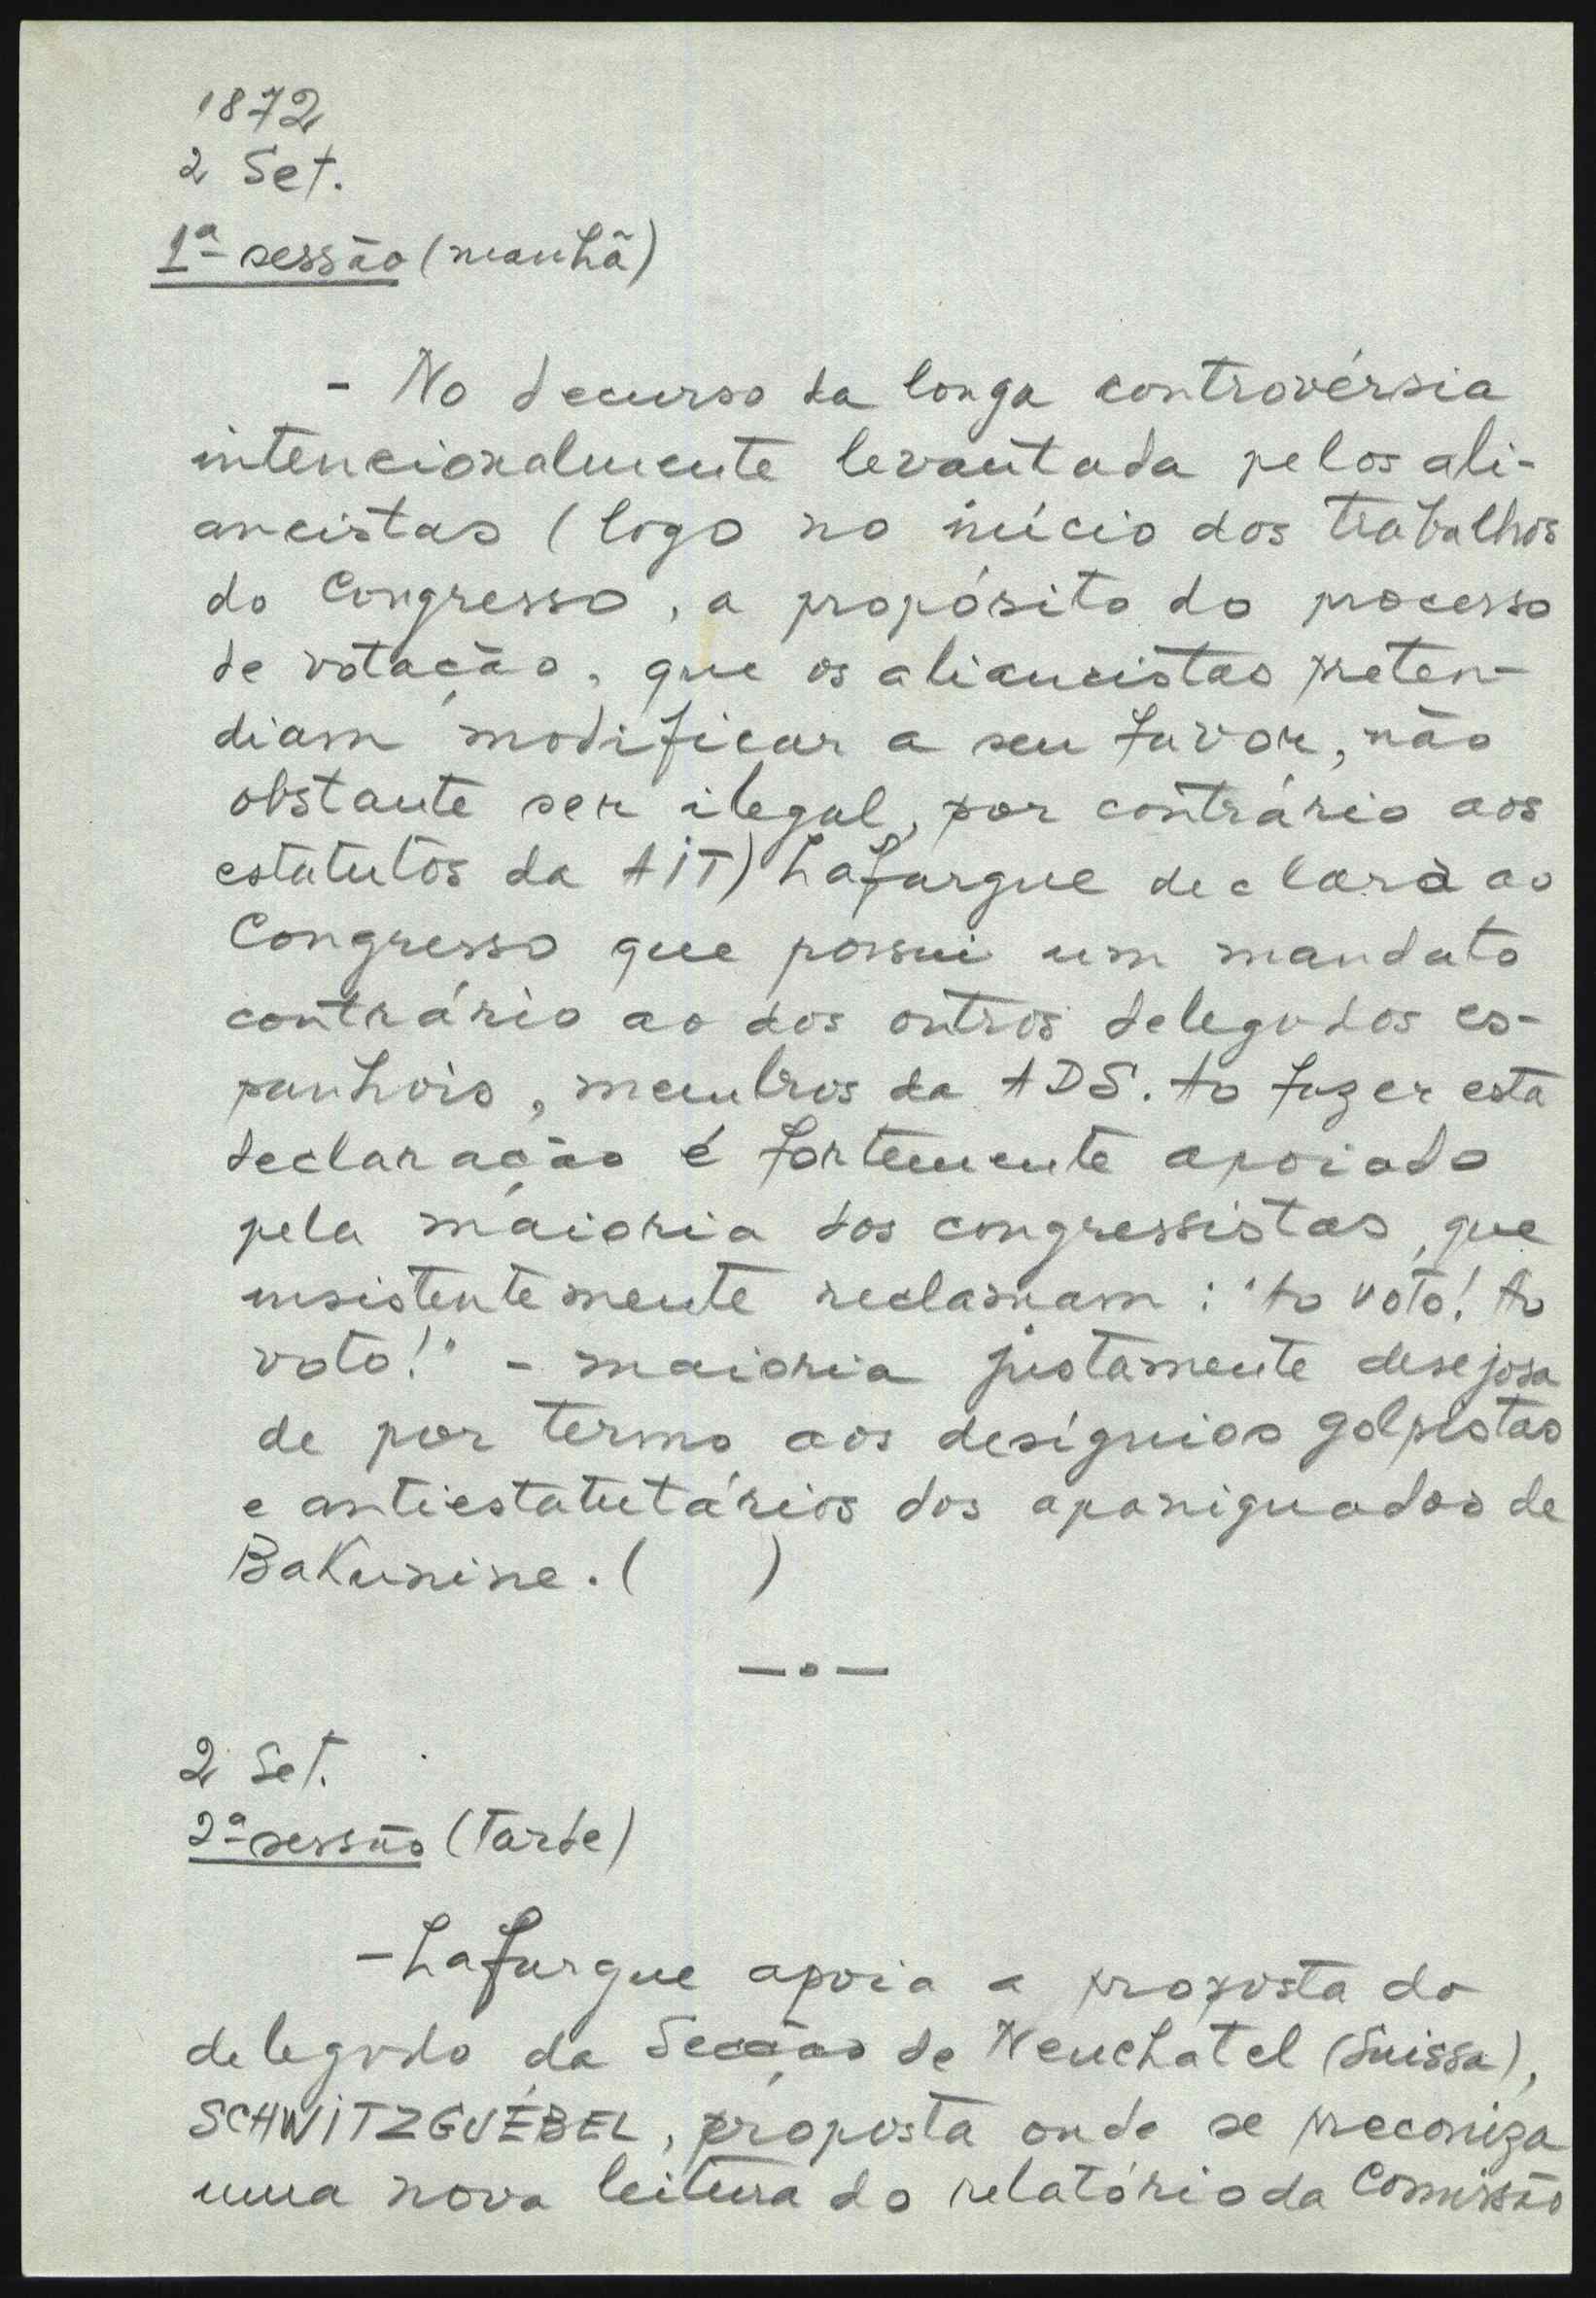 1872
2 Set.
1ª sessão (manhã)
- No decurso da longa controvérsia
intencionalmente levantada pelos ali-
ancistas (logo no início dos trabalhos
do Congresso, a propósito do processo
de votação, que os aliancistas preten-
diam modificar a seu favor, não
obstante ser ilegal, por contrário aos
estatutos da AIT) Lafargue declara ao
Congresso que possui um mandato
contrário ao dos outros delegados es-
panhois, membros da ADS. Ao fazer esta
declaração é fortemente apoiado
pela maioria dos congressistas, que
insistentemente reclamam: "Ao voto! Ao
voto!" - maioria justamente desejosa
de por termo aos desígnios golpistas
e antiestatutários dos apaniguados de
Bakunine. ( )
—•—
2 Set.
2ª sessão (Tarde)
- Lafargue apoia a proposta do
delegado da Secção de Neuchatel (Suissa),
SCHWITZGUÉBEL, proposta onde se preconiza
uma nova leitura do relatório da Comissão